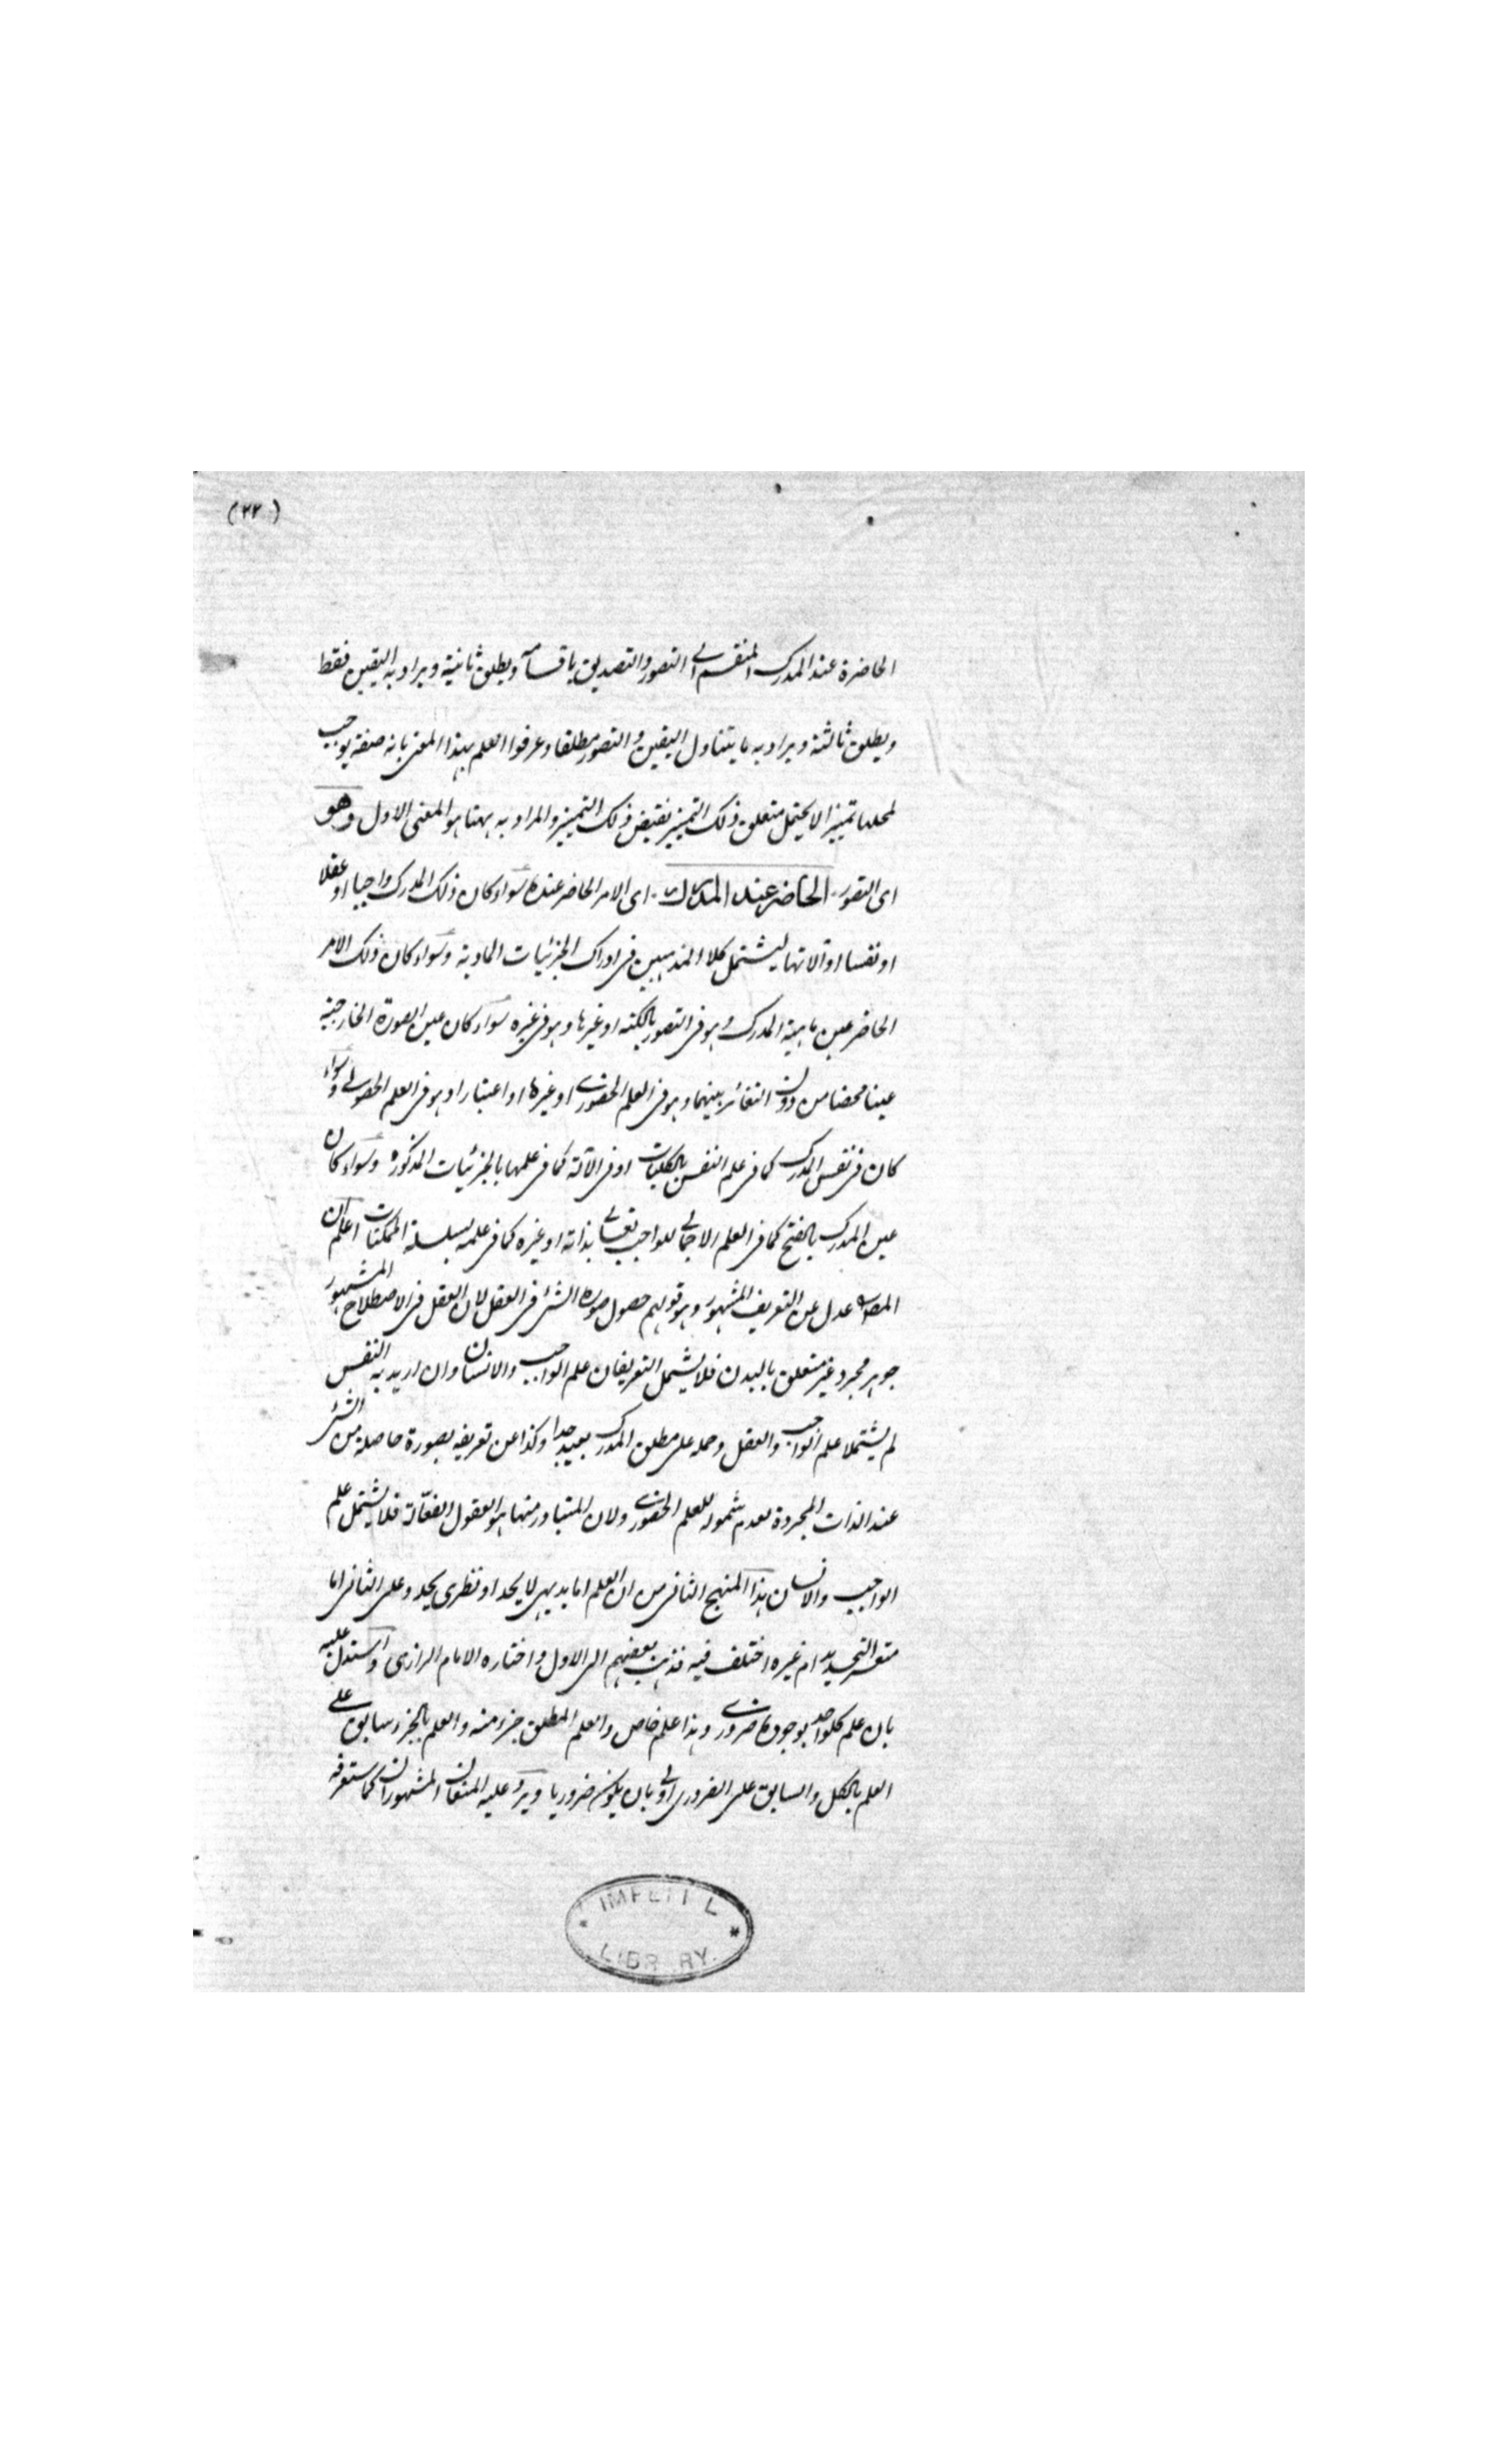 (٢٢)
الحاضرة عند المدرك المنقسم الى التصور والتصديق باقسامه ويطلق ثانية ويراد به اليقين فقط
ويطلق ثالثة ويراد به ما يتناول اليقين والتصور مطلقا وعرفوا العلم بهذا المعنى بانه صفة يوجب
لمحلها تميزا لا يحتمل متعلق ذلك التميز نقيض ذلك التميز والمراد به ههنا هو المعنى الاول وهو
اى التصور الحاضر عند المدرك اى الامر الحاضر عنده سواء كان ذلك المدرك واجبا او عقلا
او نفسا او آلاتها ليشتمل كلا المذهبين فى ادراك الجزئيات المادية وسواء كان ذلك الامر
الحاضر عين ماهية المدرك وهو فى التصور بالكنه او غيرها وهو فى غيره سواء كان عين الصورة الخارجية
عينا محضا من دون التغائر بينهما وهو فى العلم الحضورى او غيرها او اعتبارا وهو فى العلم الحصولى وسواء
كان فى نفس المدرك كما فى علم النفس بالكليات او فى الآلة كما فى علمها بالجزئيات المذكورة وسواء كان
عين المدرك بالفتح كما فى العلم الاجمالى للواجب تعالى بذاته او غيره كما فى علمه بسلسلة الممكنات اعلم ان
المصنف عدل عن التعريف المشهور وهو قولهم حصول صورة الشئ فى العقل لان العقل فى الاصطلاح المشهور
جوهر مجرد غير متعلق بالبدن فلا يشمل التعريفان علم الواجب والانسان وان اريد به النفس
لم يشتملا علم الواجب والعقل وحمله على مطلق المدرك بعيد جدا وكذا عن تعريفه بصورة حاصلة من الشئ
عند الذات المجردة لعدم شموله للعلم الحضورى ولان المتبادر منها هو العقول الفعّالة فلا يشتمل علم
الواجب والانسان هذا المنهج الثانى من ان العلم اما بديهى لا يحد او نظرى يحد وعلى الثانى اما
متعسر التحديد ام غيره اختلف فيه فذهب بعضهم الى الاول واختاره الامام الرازى واستدل عليه
بان علم كل واحد بوجوده ضرورى وهذا علم خاص والعلم المطلق جزء منه والعلم بالجزء سابق على
العلم بالكل والسابق على الضرورى اولى بان يكون ضروريا ويرد عليه المنعان المشهوران كما ستعرفه
LIBRARY.